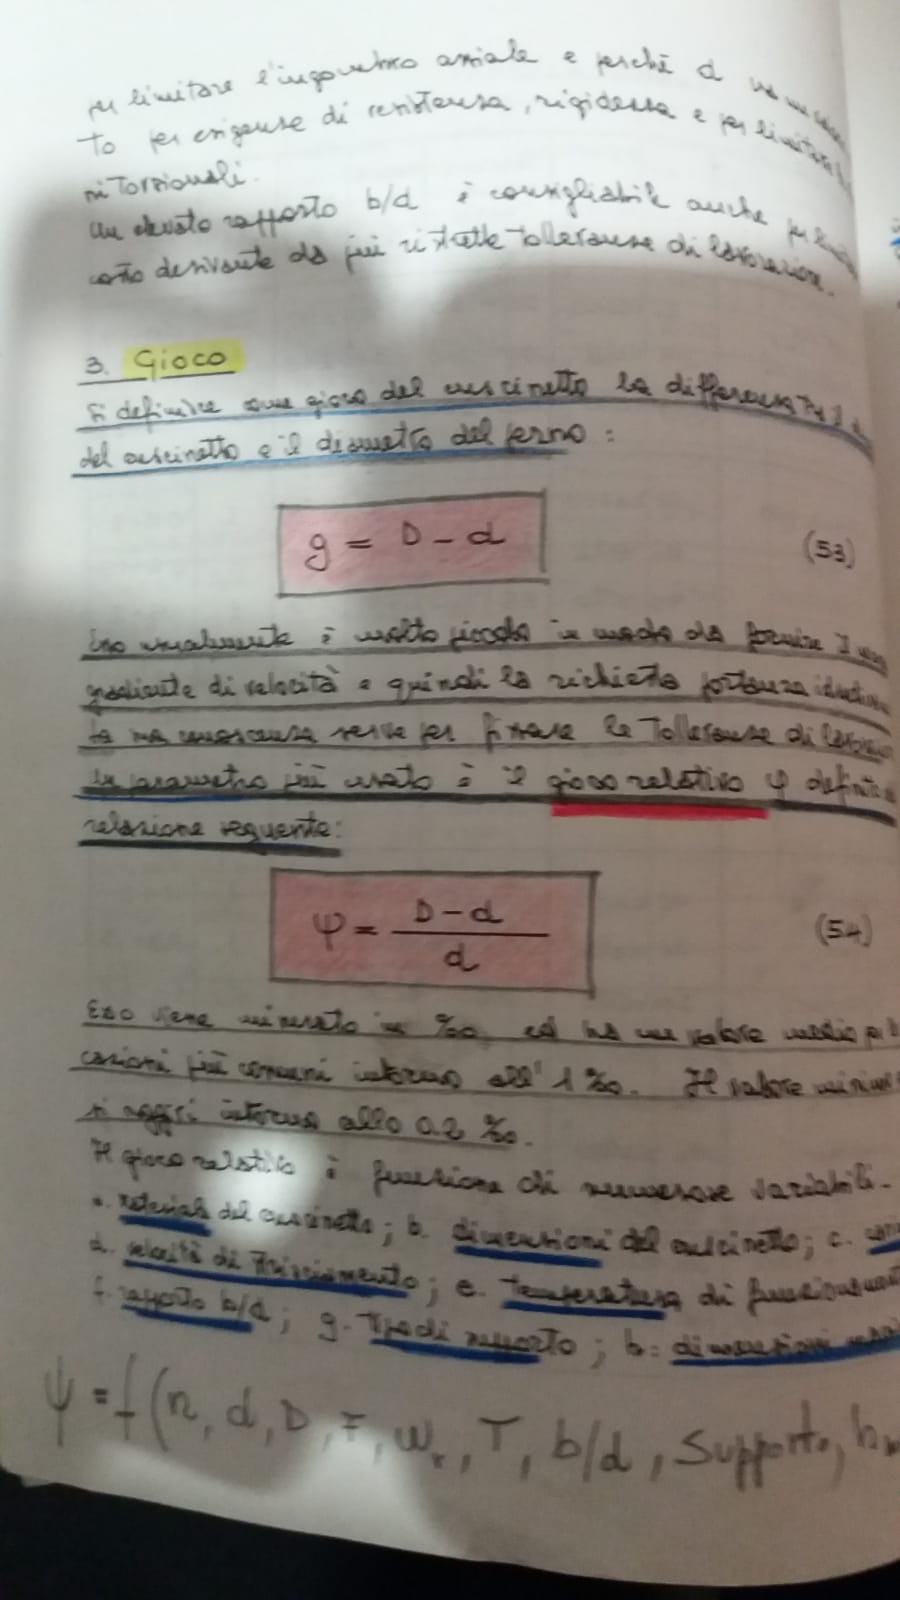 per limitare l'ingombro assiale e perché d
to per esigenze di resistenza, rigidezza e per limitare
ni Torsionali.
Un elevato rapporto b/d è consigliabile anche per
costo derivante da più ristrette Tolleranze di lavorazione.
3. Gioco
Si definisce come gioco del cuscinetto la differenza tra il
del cuscinetto e il diametro del perno:
g = D - d (53)
Esso usualmente è molto piccolo in modo da fornire
gradiente di velocità e quindi la richiesta portanza
la sua conoscenza serve per fissare le Tolleranze di
Un parametro più usato è il gioco relativo ψ
relazione seguente:
ψ = D-d / d (54)
Esso viene misurato in ‰ ed ha un valore medio
casioni più comuni intorno all' 1 ‰. Il valore
si aggiri intorno allo 0.2 ‰.
Il gioco relativo è funzione di numerose variabili.
a. materiali del cuscinetto; b. dimensioni del cuscinetto; c.
d. velocità di strisciamento; e. Temperatura di
f. rapporto b/d; g. Tipo di supporto; h: dimensioni
ψ = f (n, d, D, F, wr, T, b/d, Supporto, h